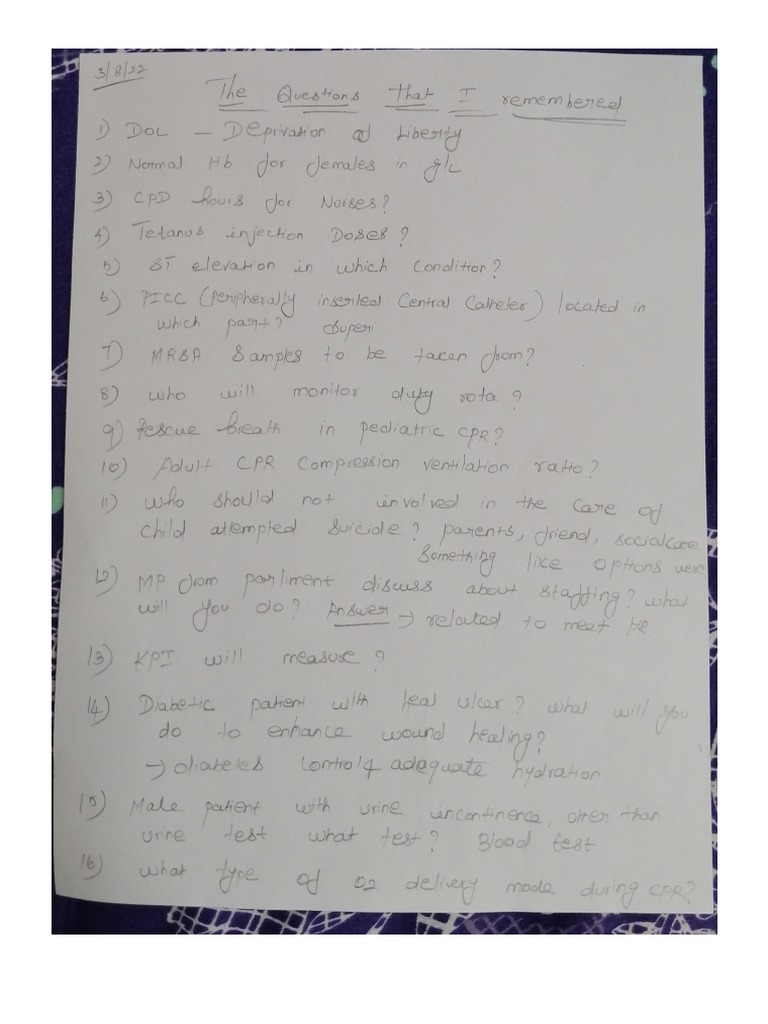 3/8/22
The Questions that I remembered
1) DOL - Deprivation of Liberty
2) Normal Hb for females in g/L
3) CPD hours for Nurses?
4) Tetanus injection Doses?
5) ST elevation in which condition?
6) PICC (Peripherally inserted Central Catheter) located in
which part? Superi
7) MRSA Samples to be taken from?
8) who will monitor duty rota?
9) Rescue breath in pediatric CPR?
10) Adult CPR Compression ventilation ratio?
11) who should not involved in the care of
child attempted suicide? parents, friend, socialcare
Something like options were
12) MP from parliment discuss about staffing? what
will you do? Answer → related to meet HR
13) KPI will measure?
14) Diabetic patient with heal ulcer? what will you
do to enhance wound healing?
→ diabetes control & adequate hydration
15) Male patient with urine incontinence, other than
urine test what test? Blood test
16) what type of O2 delivery mode during CPR?